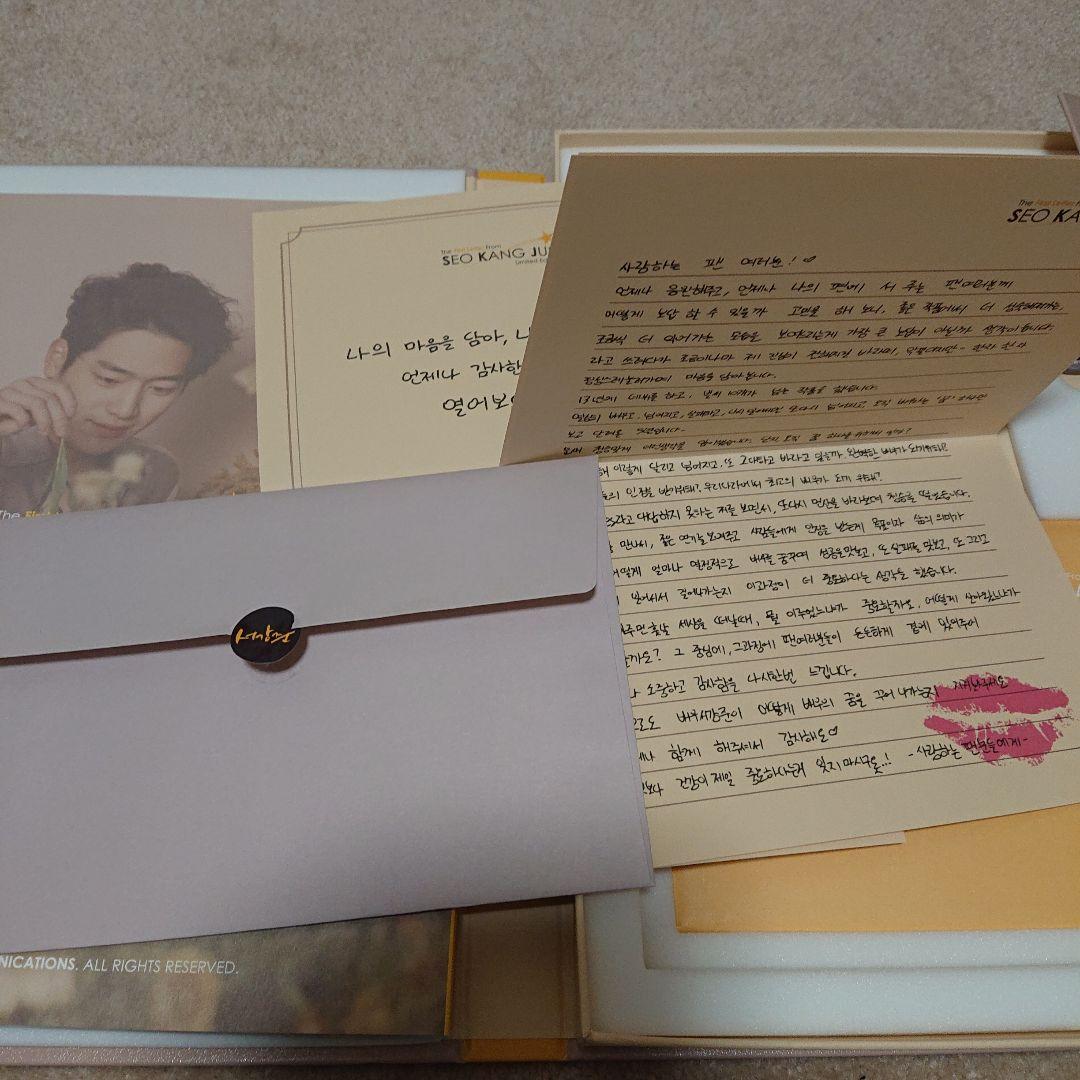 The First Letter from
SEO KANG JU
Limited Ed
나의 마음을 담아, 나
언제나 감사한
열어보
The First Letter f
SEO KA
사랑하는 팬 여러분! ♡
언제나 응원해주고, 언제나 나의 편에 서 주는 팬여러분께
어떻게 보답 할 수 있을까 고민을 해 보니, 좋은 작품에서 더 성숙해지는,
조금씩 더 나아가는 모습을 보여드리는게 가장 큰 보답이 아닐까 생각이듭니다.
라고 쓰려다가 조금이나마 제 진심이 전해지길 바라며, 한자 한자
마음을 담아봅니다.
13년에 데뷔를 하고, 벌써 10개가 넘는 작품을 했습니다.
보고 달려온
해 이렇게 달리고 넘어지고, 또
의 인정을 받기위해? 우리나라에서 최고의 배우가 되기 위해?
라고 대답하지 못하는 저를 보면서, 또다시 먼산을 바라보며
만나서, 좋은 연기를 보여주고 사람들에게 인정을 받는게 목표이자 삶의 의미가
어떻게 얼마나 열정적으로 배우를 꿈꾸며 성공을맛보고, 또 실패를 맛보고, 또 그리고
일어서서 걸어나가는지 이과정이 더 중요하다는 생각을 했습니다.
먼훗날 세상을 떠날때, 뭘 이루었느냐가 중요할지, 어떻게 살아왔느냐가
할까요? 그 중심에, 그과정에 팬여러분들이 든든하게 곁에 있어주어
소중하고 감사함을 다시한번 느낍니다.
으로도 배우서강준이 어떻게 배우의 꿈을 꾸어 나가는지 지켜봐주세요
제나 함께 해주셔서 감사해요♡
보다 건강이 제일 중요하다는거 잊지 마시구요!! -사랑하는 팬분들에게-
The Fi
서강준
NICATIONS. ALL RIGHTS RESERVED.